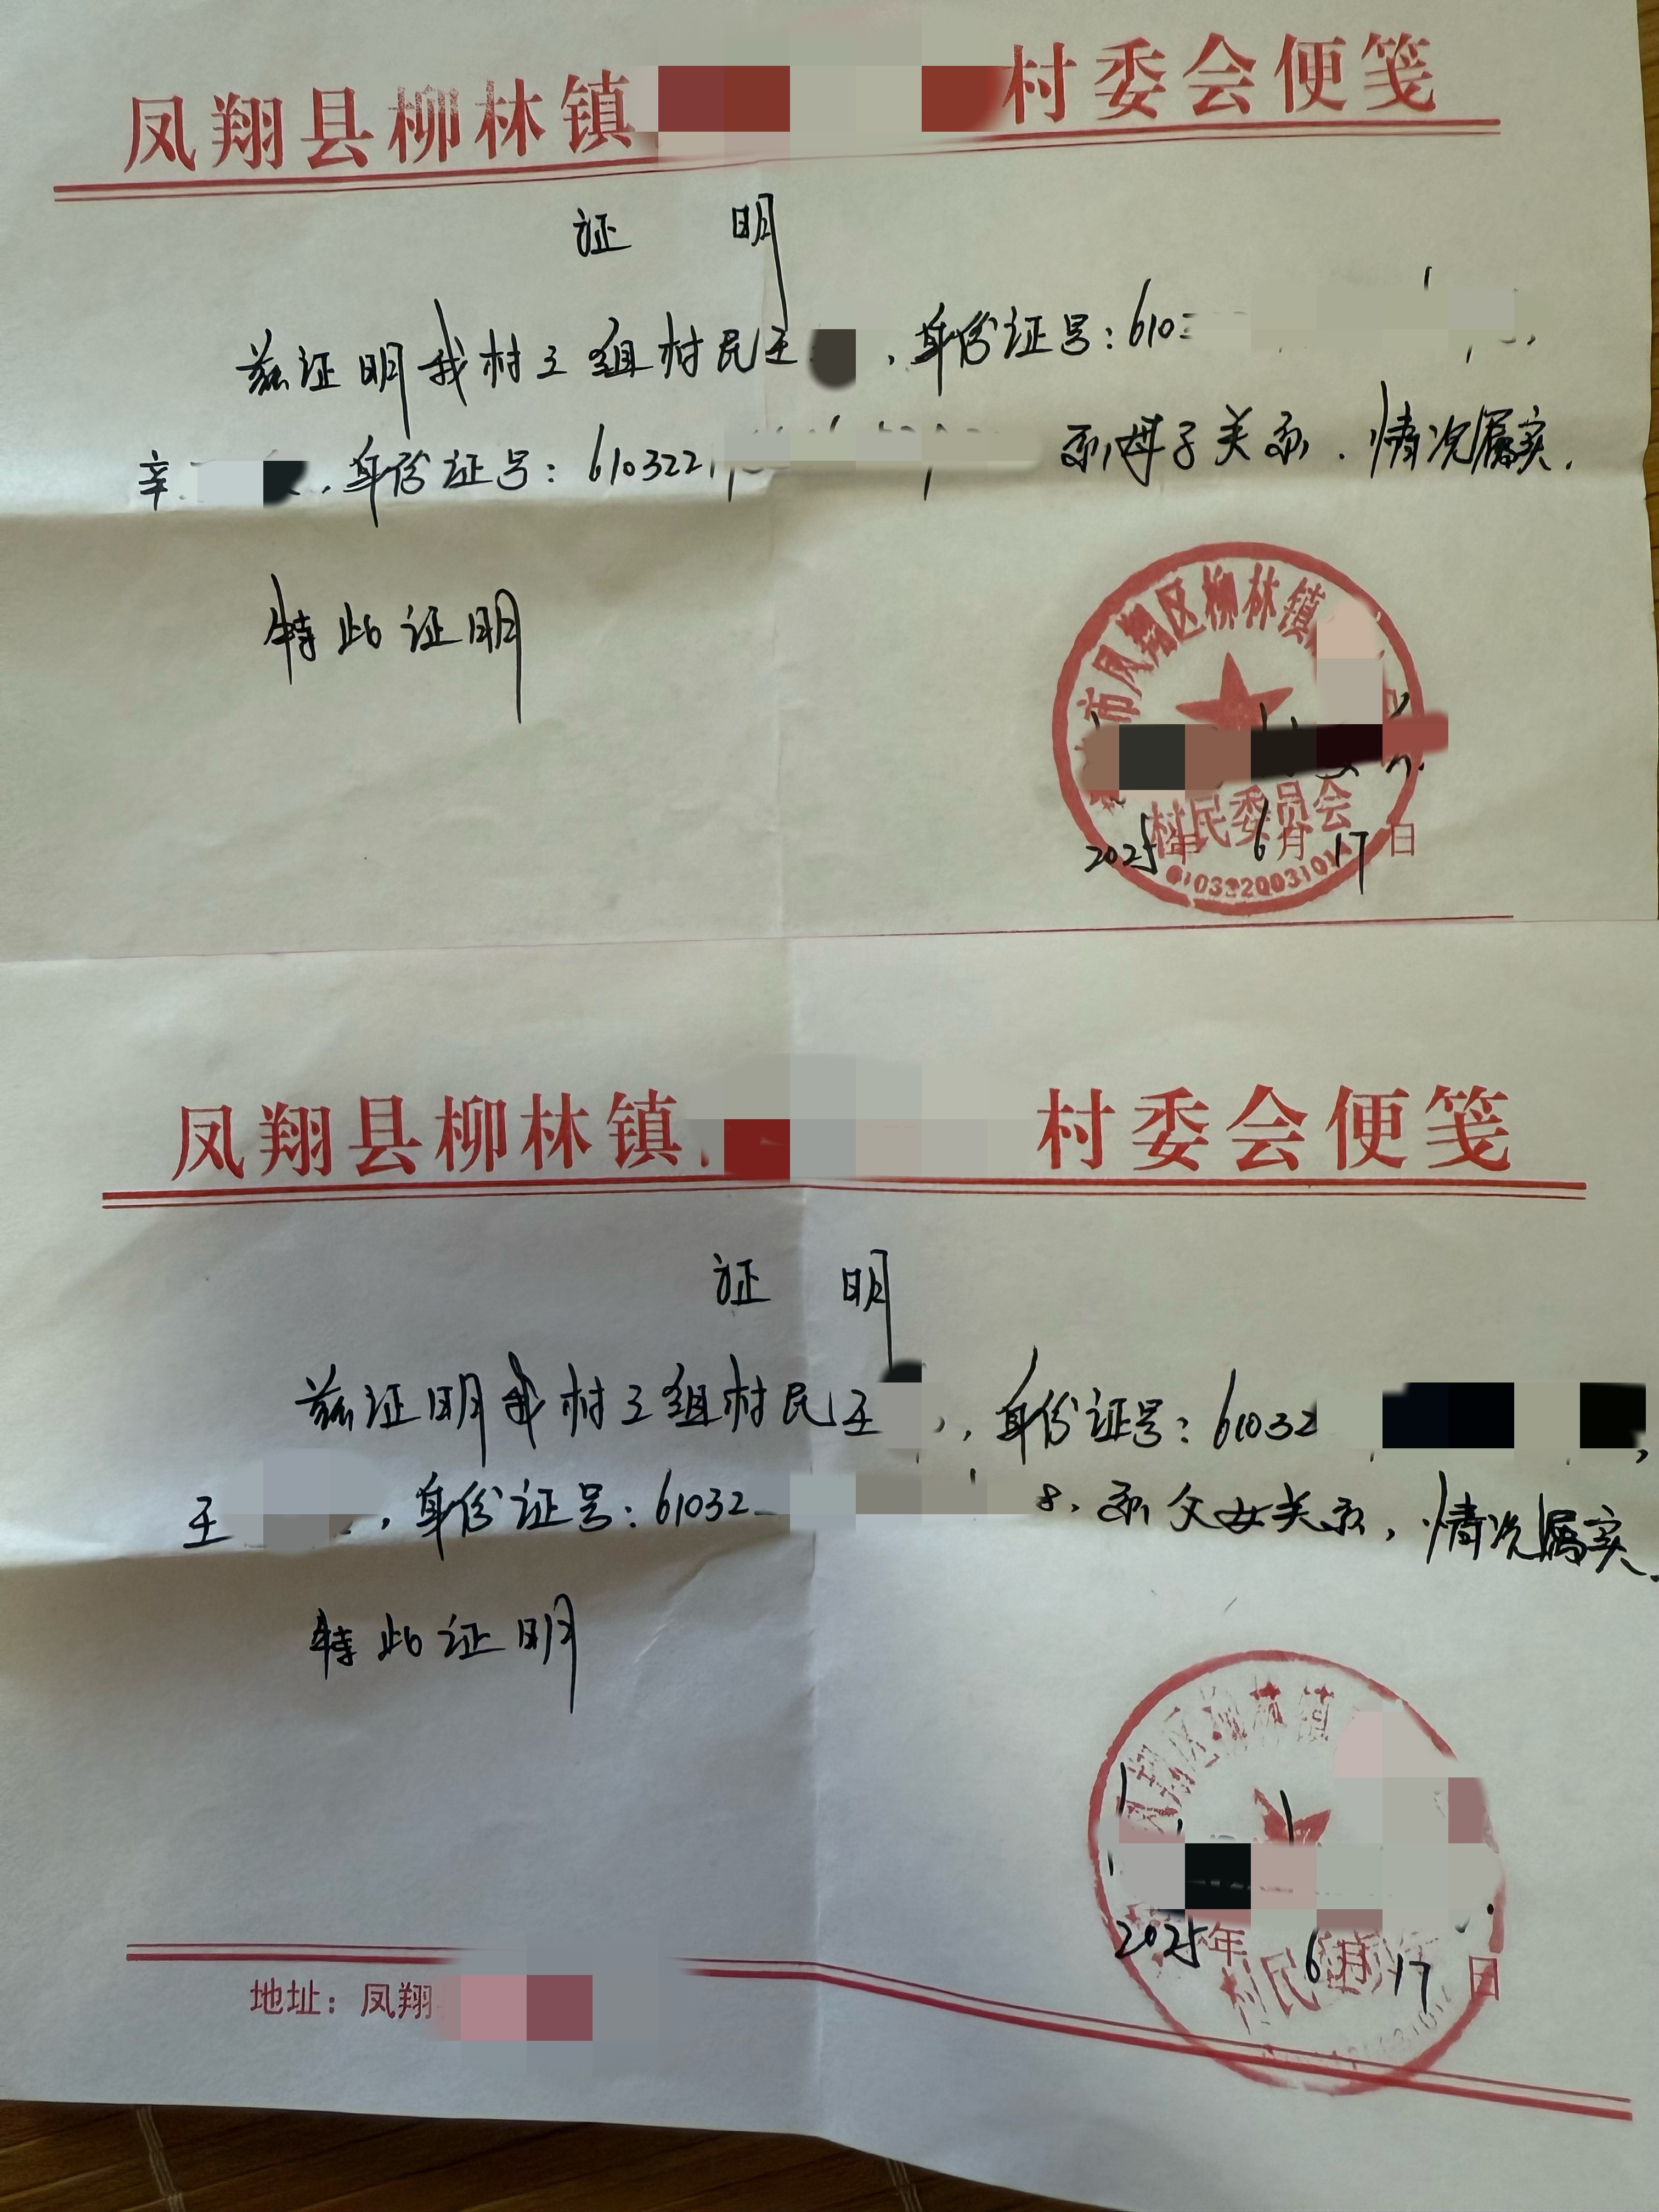 凤翔县柳林镇 村委会便笺
证 明
兹证明我村三组村民王 ,身份证号:610
辛 ,身份证号:610322 系母子关系.情况属实.
特此证明
市凤翔区柳林镇
村民委员会
2025年6月17日
凤翔县柳林镇 村委会便笺
证 明
兹证明我村三组村民王 ,身份证号:61032
王 ,身份证号:61032 8,系父女关系,情况属实.
特此证明
凤翔区柳林镇
村民
2025年6月17日
地址:凤翔